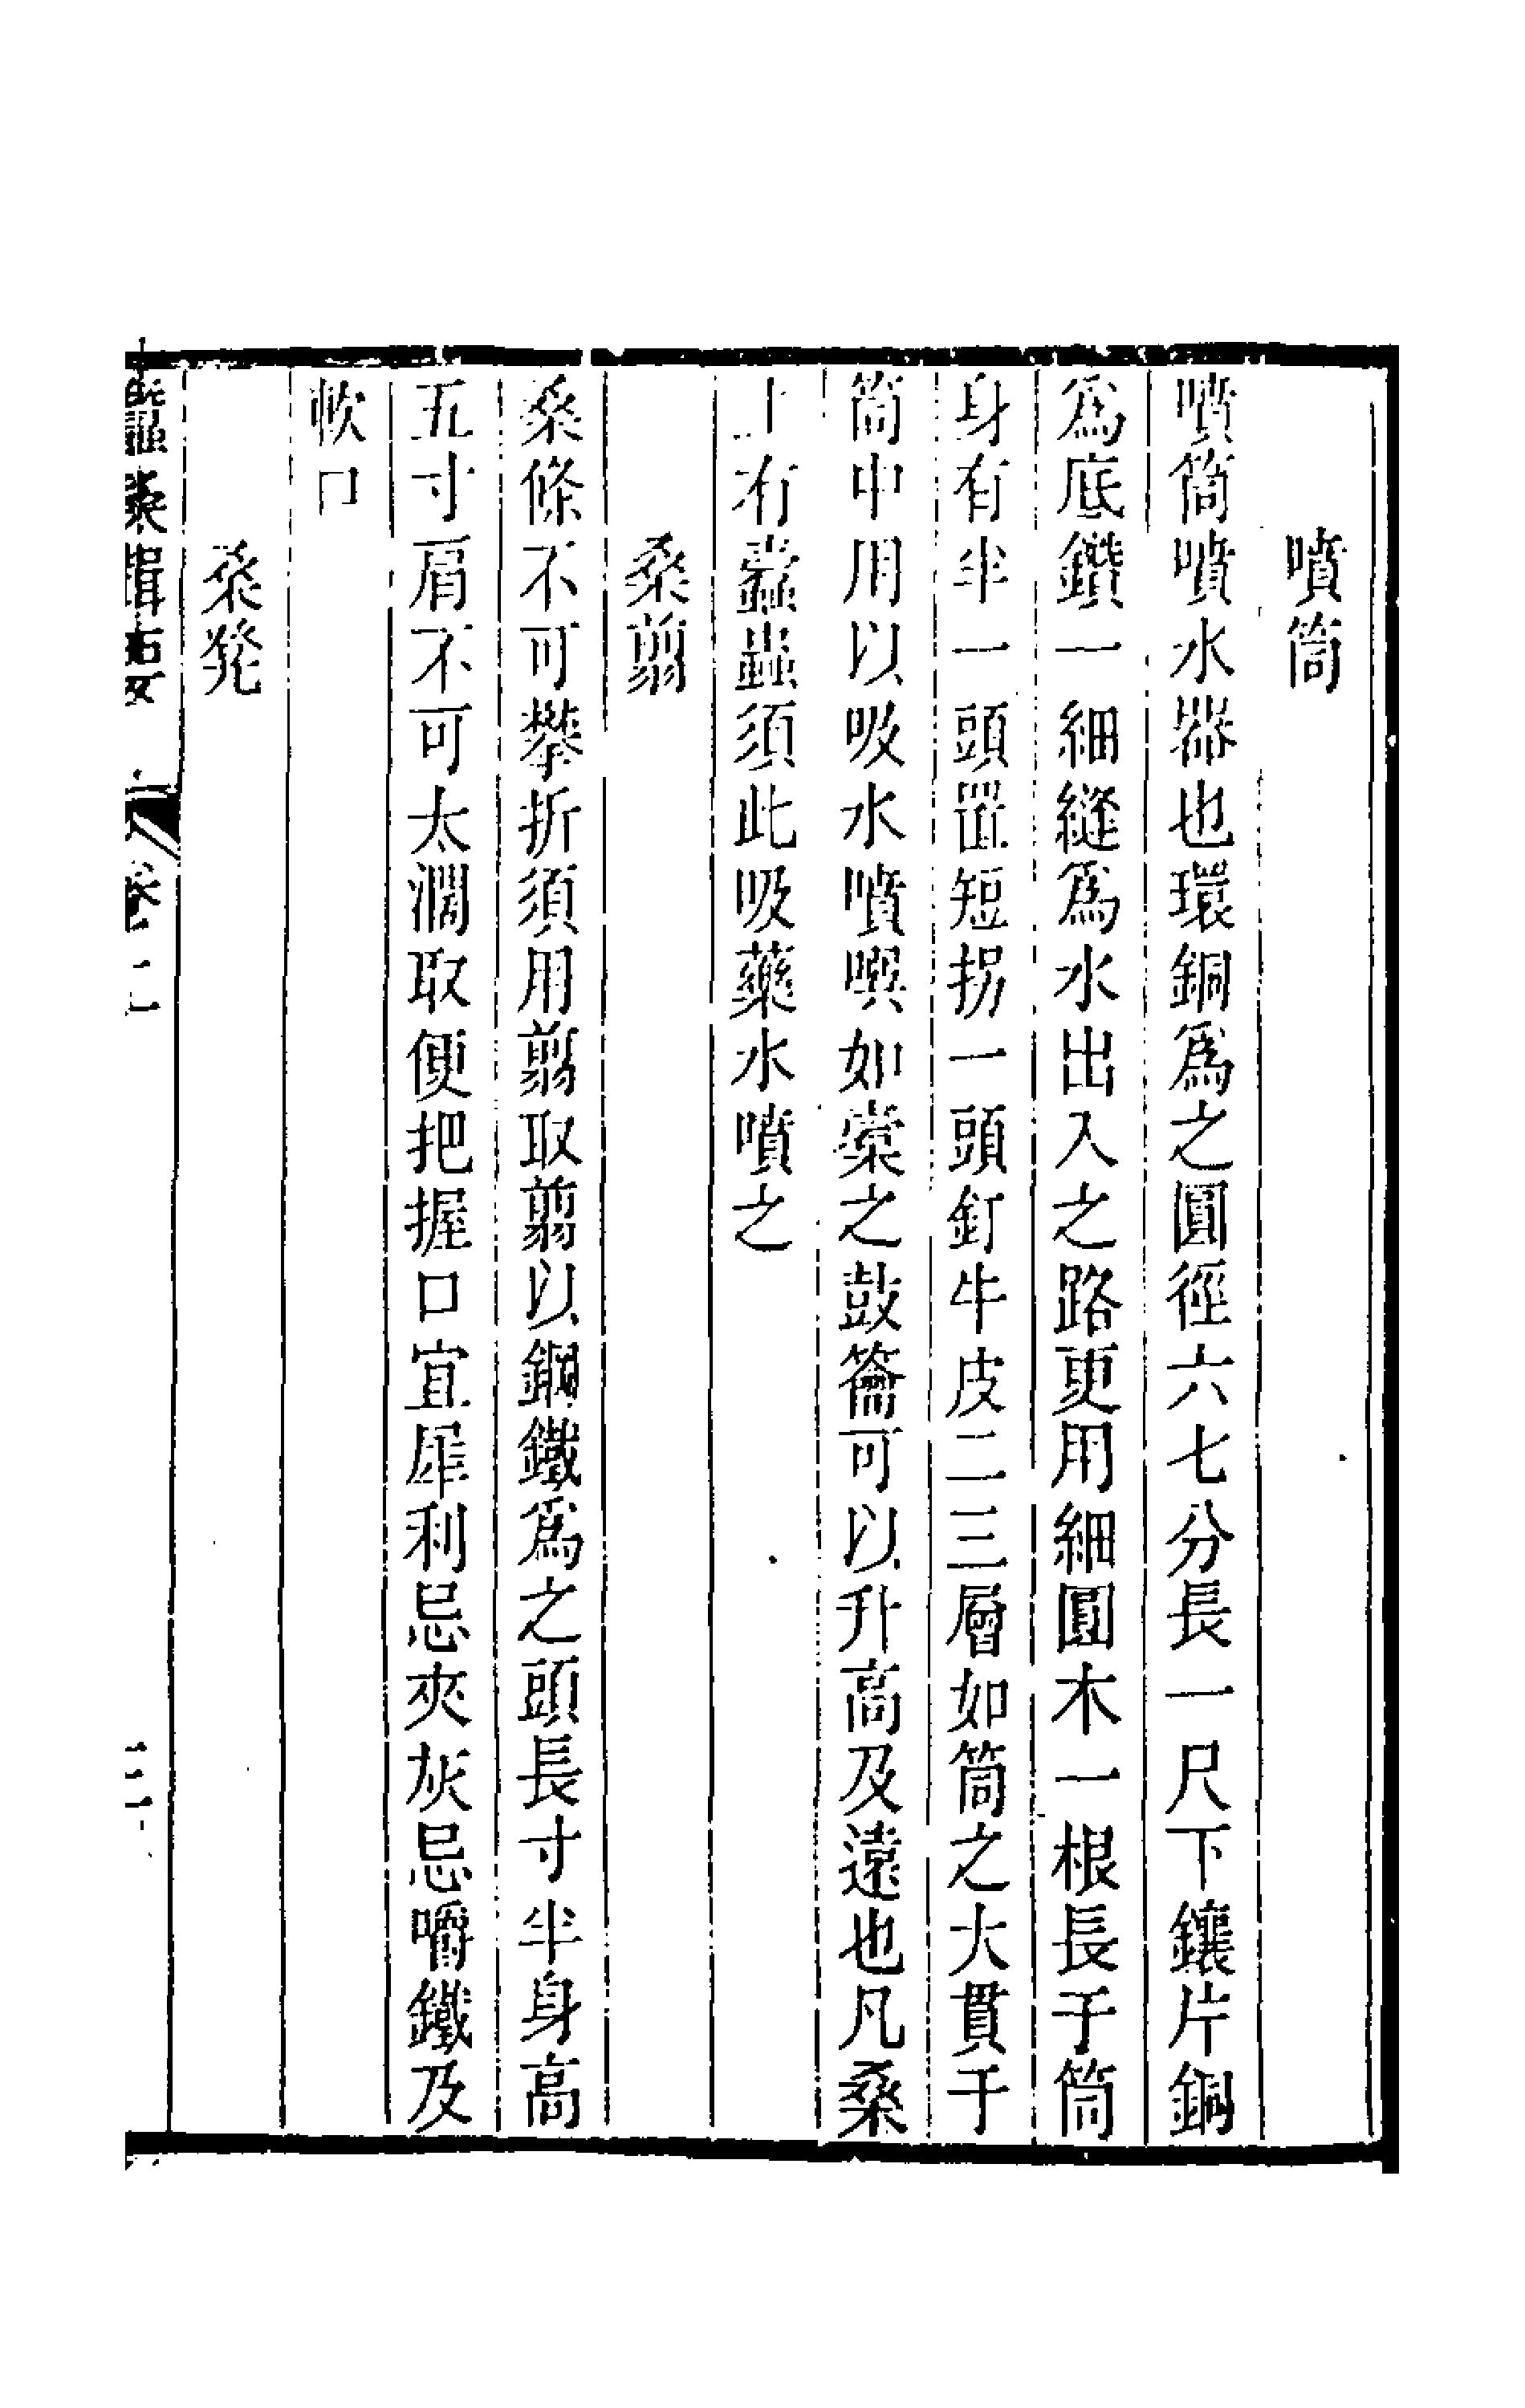 噴筒
噴筒噴水器也環銅爲之圓徑六七分長一尺下鑲片銅
爲底鑽一細縫爲水出入之路更用細圓木一根長于筒
身有半一頭置短拐一頭釘牛皮二三層如筒之大貫于
筒中用以吸水噴噀如橐之鼓籥可以升高及遠也凡桑
上有蠹蟲須此吸藥水噴之
桑剪
桑條不可攀折須用剪取剪以鋼鐵爲之頭長寸半身高
五寸肩不可太濶取便把握口宜犀利忌夾灰忌嚼鐵及
軟口
桑凳
蠶桑輯要 卷二 三